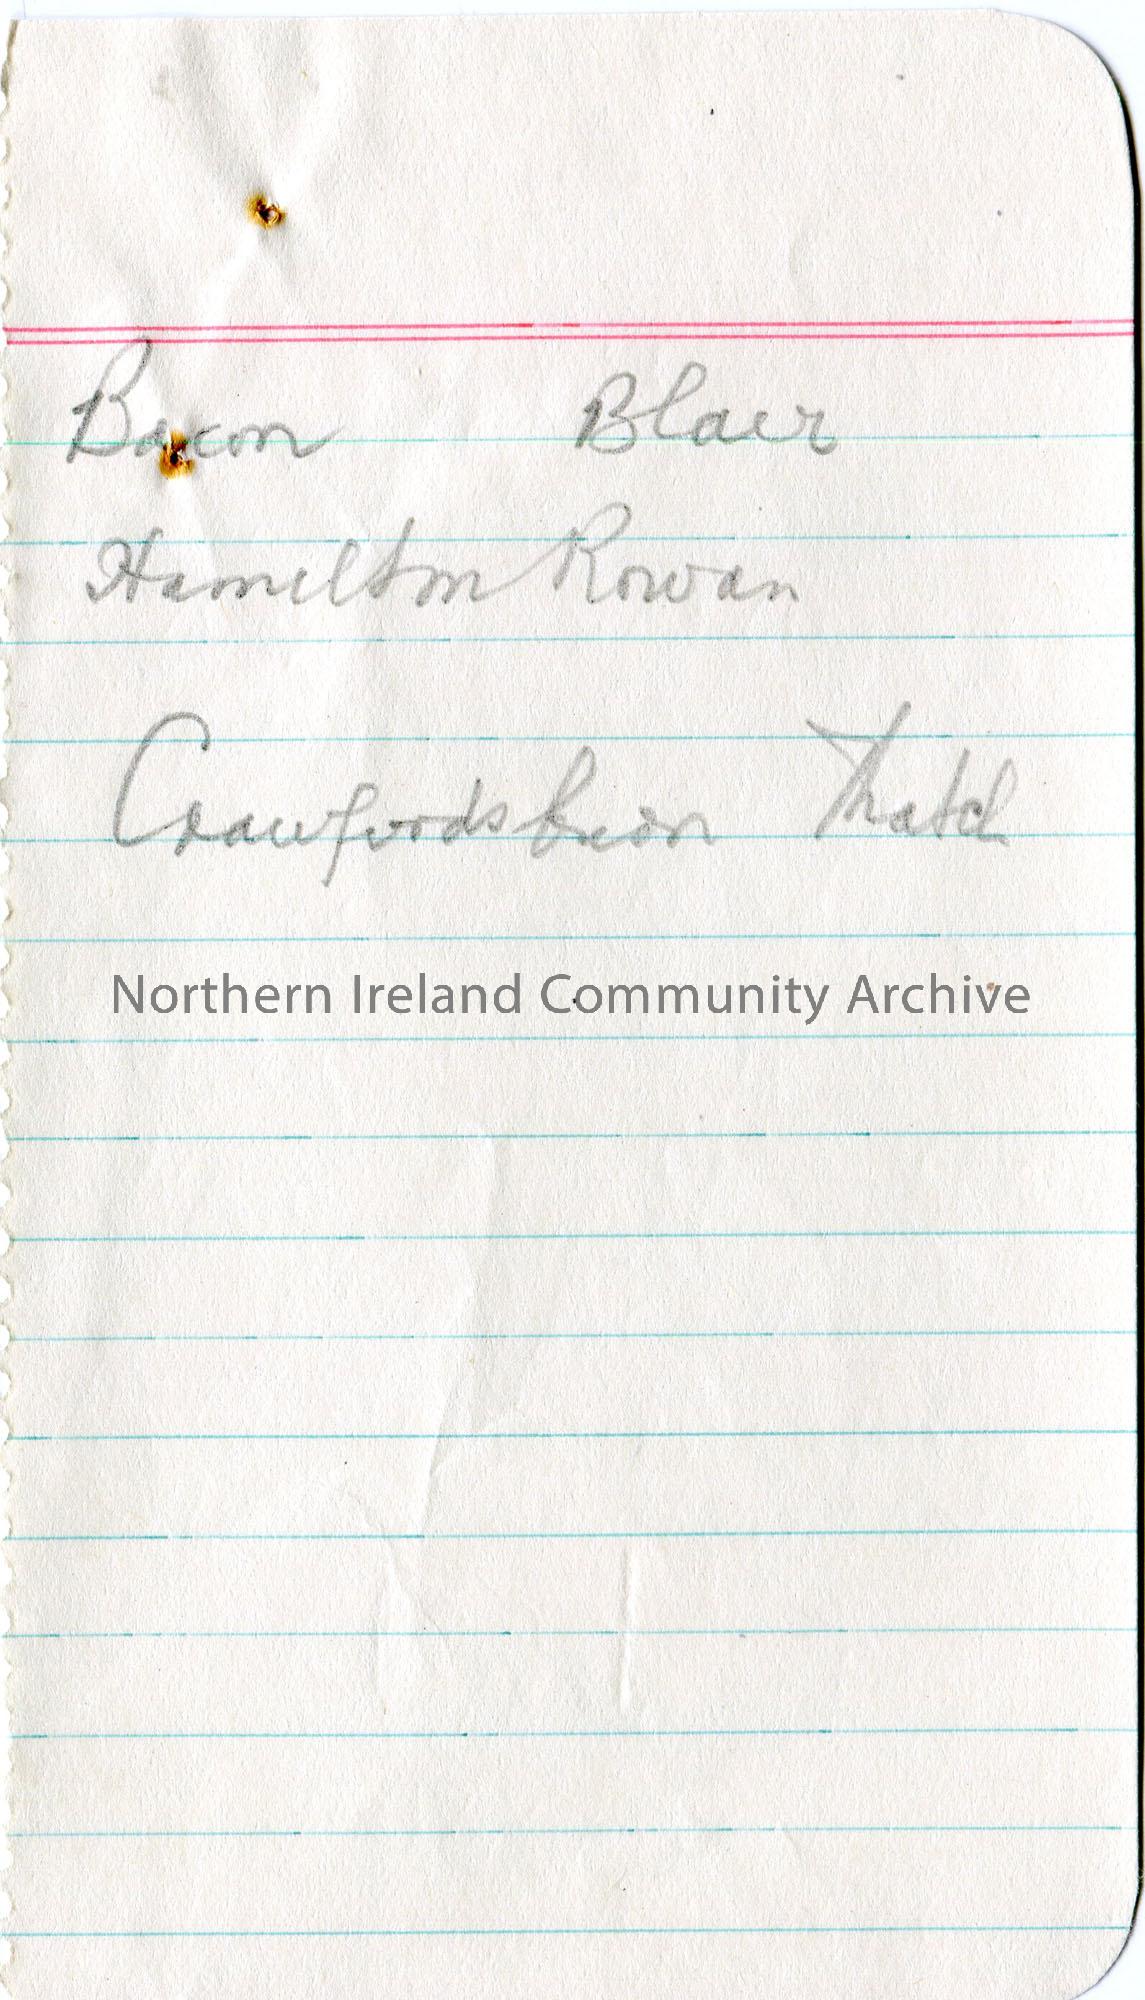 Bacon Blair
Hamilton Rowan
Crawfordsburn Thatch
Northern Ireland Community Archive